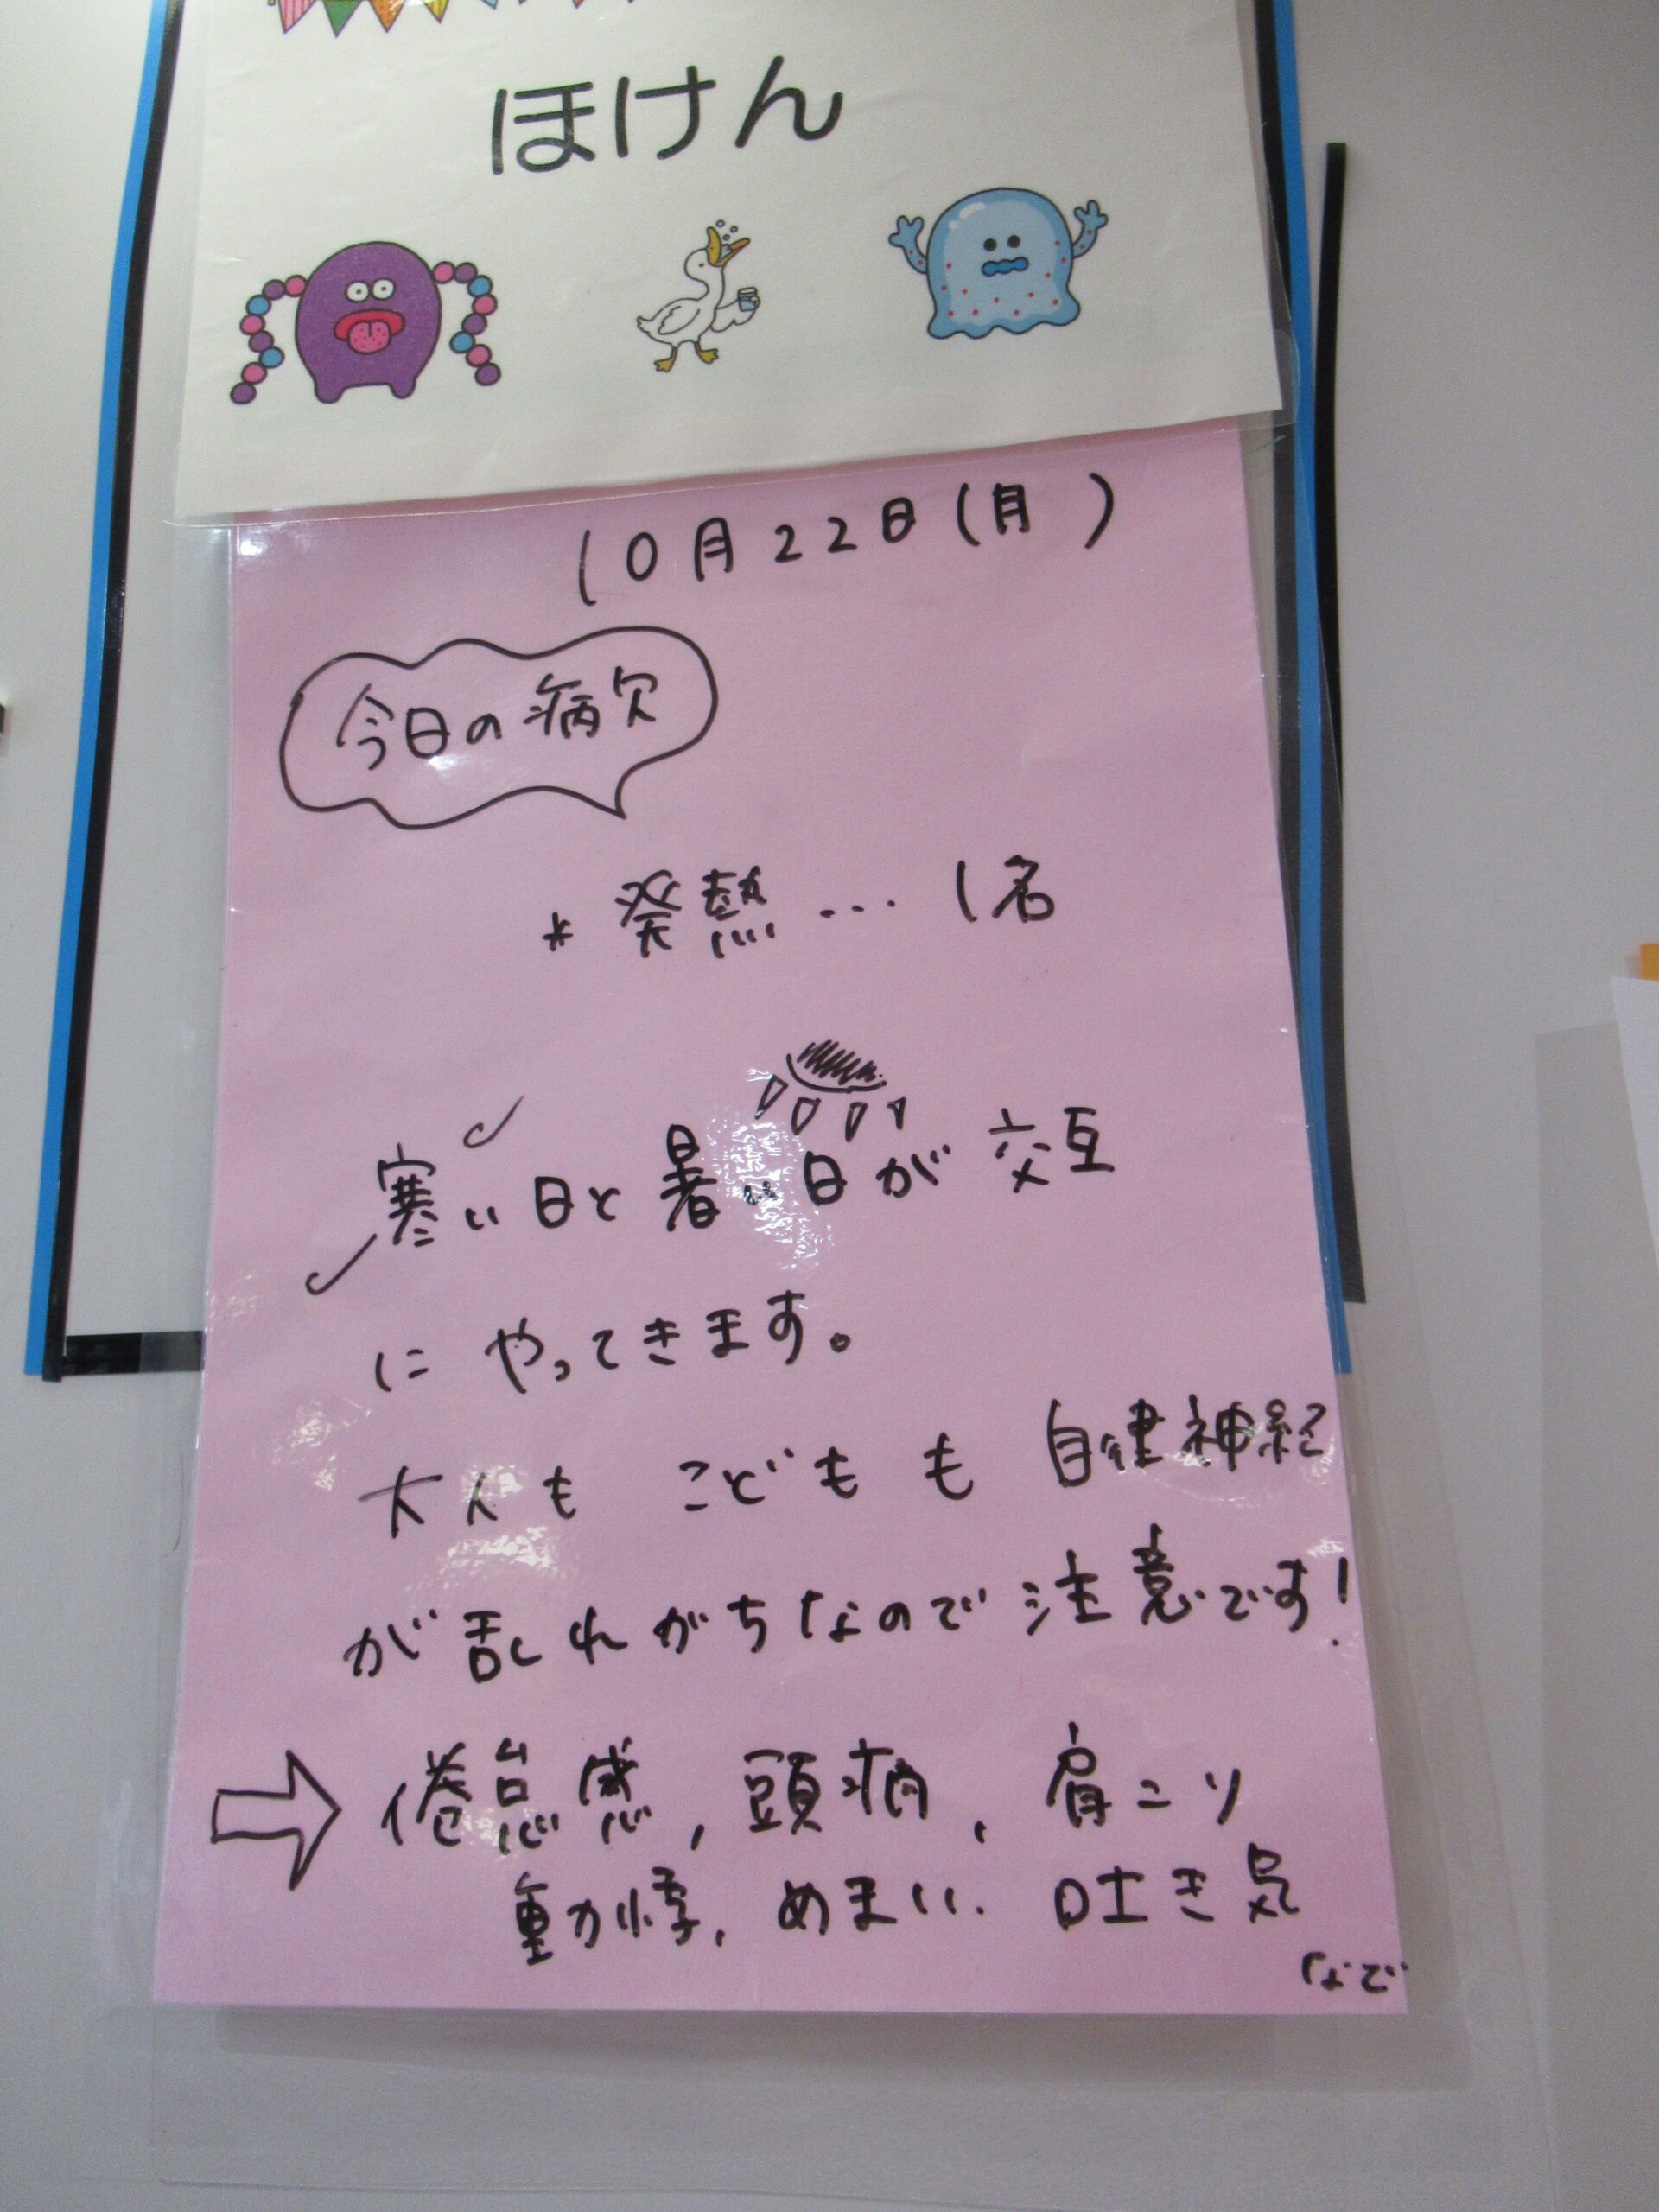 ほけん
10月22日(月 )
今日の病欠
* 発熱 … 1名
寒い日と暑い日が交互
に やってきます。
大人も こどもも 自律神経
が乱れがちなので注意です!
倦怠感, 頭痛, 肩こり
動悸, めまい, 吐き気
など